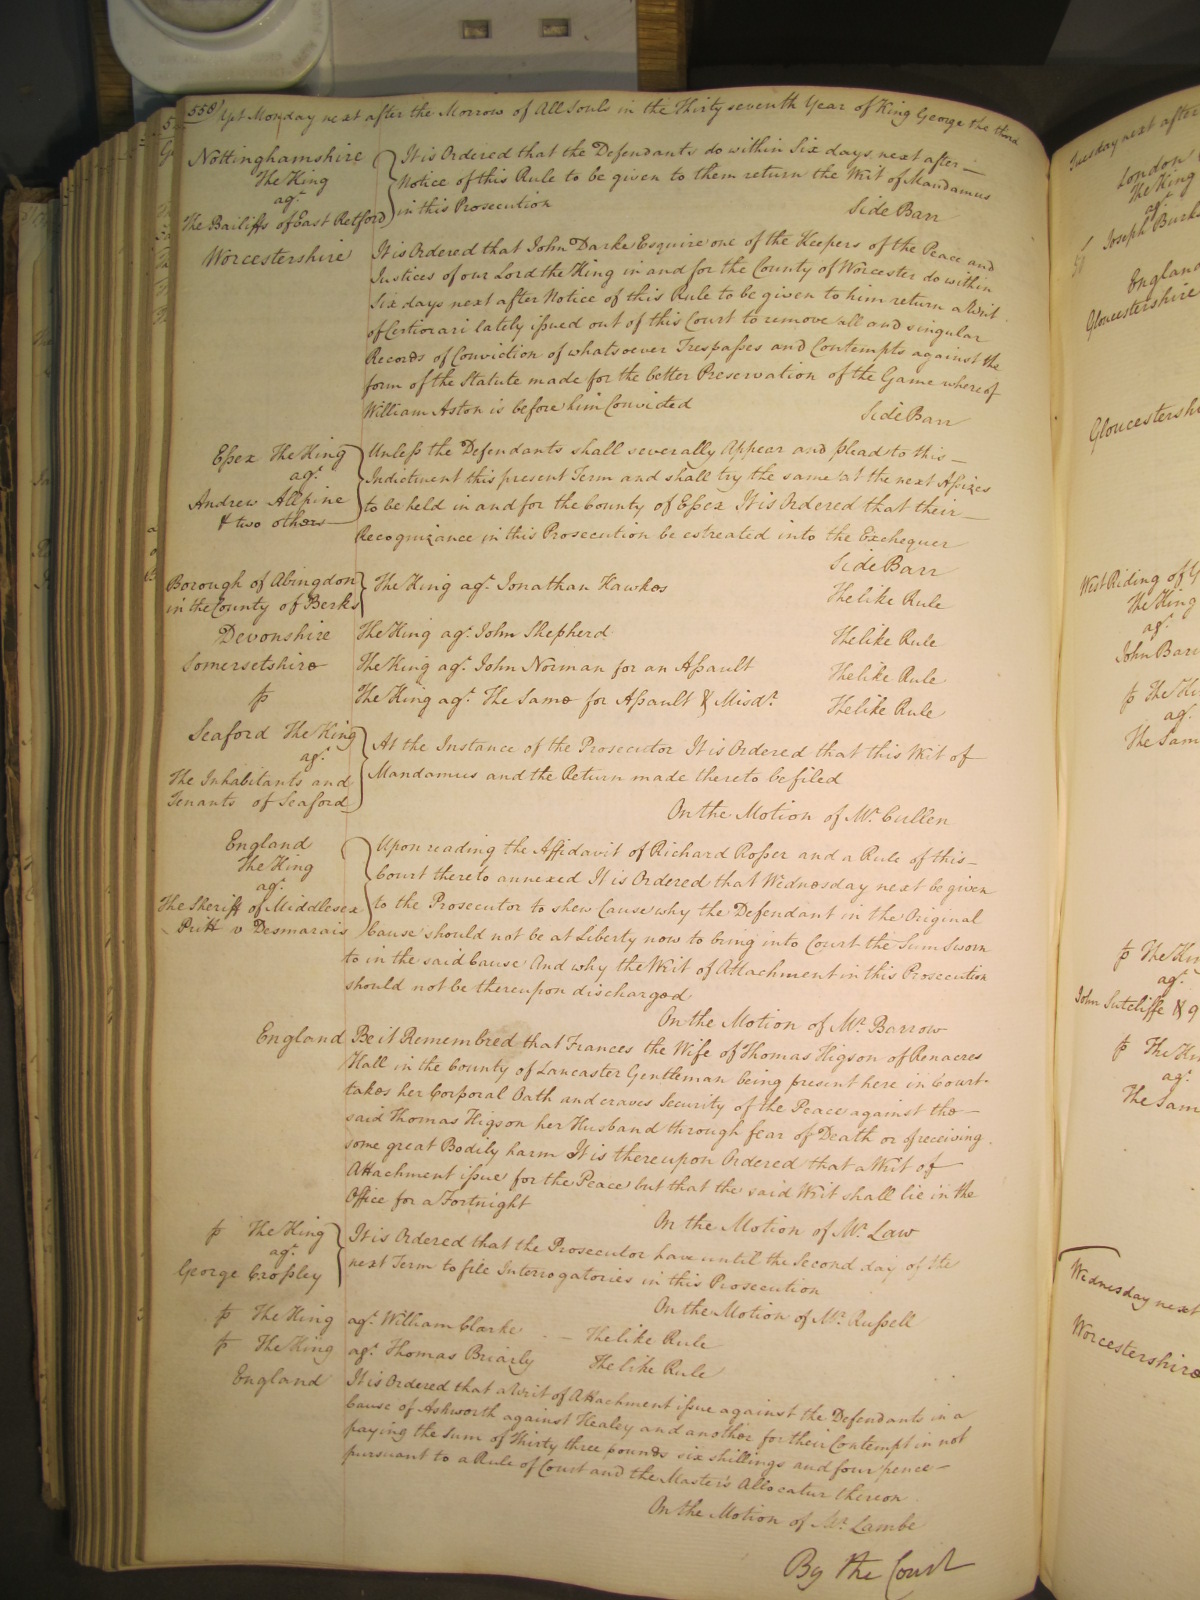 558 Yet Monday next after the Morrow of All Souls in the Thirty seventh Year of King George the third
Nottinghamshire
The King
agt.
The Bailiffs of East Retford
It is Ordered that the Defendants do within Six days next after —
Notice of this Rule to be given to them return the Writ of Mandamus
in this Prosecution
Side Barr
Worcestershire
It is Ordered that John Darke Esquire one of the Keepers of the Peace and
Justices of our Lord the King in and for the County of Worcester do within
Six days next after Notice of this Rule to be given to him return a Writ
of Certiorari lately issued out of this Court to remove all and singular
Records of Conviction of whatsoever Trespasses and Contempts against the
form of the Statute made for the better Preservation of the Game whereof
William Aston is before him Convicted
Side Barr
Essex The King
agt.
Andrew Allpine
& two others
Unless the Defendants shall severally Appear and plead to this —
Indictment this present Term and shall try the same at the next Assizes
to be held in and for the County of Essex It is Ordered that their —
Recognizance in this Prosecution be estreated into the Exchequer
Side Barr
Borough of Abingdon
in the County of Berks
The King agt. Jonathan Hawkes
The like Rule
Devonshire The King agt. John Shepherd The like Rule
Somersetshire The King agt. John Norman for an Assault The like Rule
þ The King agt. The Same for Assault & Misdr. The like Rule
Seaford The King
agt.
The Inhabitants and
Tenants of Seaford
At the Instance of the Prosecutor It is Ordered that this Writ of
Mandamus and the Return made thereto be filed
On the Motion of Mr. Cullen
England
The King
agt.
The Sheriff of Middlesex
Pritt v Desmarais
Upon reading the Affidavit of Richard Rosser and a Rule of this —
Court thereto annexed It is Ordered that Wednesday next be given
to the Prosecutor to shew Cause why the Defendant in the Original
Cause should not be at Liberty now to bring into Court the Sum Sworn
to in the said Cause And why the Writ of Attachment in this Prosecution
should not be thereupon discharged
On the Motion of Mr. Barrow
England Be it Remembred that Frances the Wife of Thomas Higson of Renacres
Hall in the County of Lancaster Gentleman being present here in Court
takes her Corporal Oath and craves Security of the Peace against the —
said Thomas Higson her Husband through fear of Death or of receiving
some great Bodily harm It is thereupon Ordered that a Writ of
Attachment issue for the Peace but that the said Writ shall lie in the
Office for a Fortnight
On the Motion of Mr. Law
þ The King
agt.
George Crossley
It is Ordered that the Prosecutor have until the Second day of the
next Term to file Interrogatories in this Prosecution
On the Motion of Mr. Russell
þ The King agt. William Clarke — The like Rule
þ The King agt. Thomas Briarly The like Rule
England
It is Ordered that a Writ of Attachment issue against the Defendants in a
Cause of Ashworth against Healey and another for their Contempt in not
paying the Sum of Thirty three pounds six shillings and four pence —
pursuant to a Rule of Court and the Master's Allocatur thereon
On the Motion of Mr. Lambe
By the Court
Tuesday next after
London
The King
agt.
Joseph Burk
England
Gloucestershire
Gloucestersh
West Riding of Y
The King
agt.
John Bar
þ The Ki
agt.
The Sam
þ The Ki
agt.
John Sutcliffe & 9
þ The Ki
agt.
The Sam
Wednesday next
Worcestershire